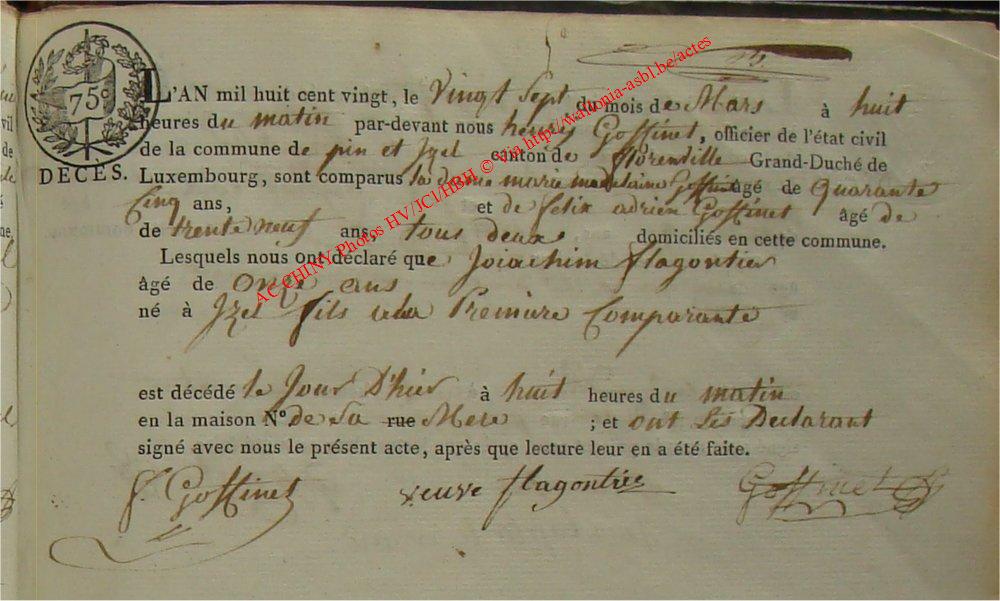 5
75c
DECÈS.
L'AN mil huit cent vingt, le Vingt Sept du mois de Mars à huit
heures du matin par-devant nous Goffinet, officier de l'état civil
de la commune de pin et Izel canton de florenville Grand-Duché de
Luxembourg, sont comparus la dame marie madelaine Goffinet âgé de Quarante
Cinq ans, et de felix adrien Goffinet âgé de
de trente neuf ans, tous deux domiciliés en cette commune.
Lesquels nous ont déclaré que Joiachim flagontier
âgé de onze ans
né à Izel fils de la Premiere Comparante
est décédé le Jour D'hier à huit heures du matin
en la maison N° de Sa rue Mere ; et ont Les Declarant
signé avec nous le présent acte, après que lecture leur en a été faite.
f. Goffinet veuve flagontier Goffinet
AC CHINY Photos HV/JCl/HBH © via http://wallonia-asbl.be/actes